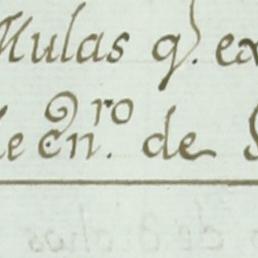 Mulas q. ex
de en.ro de